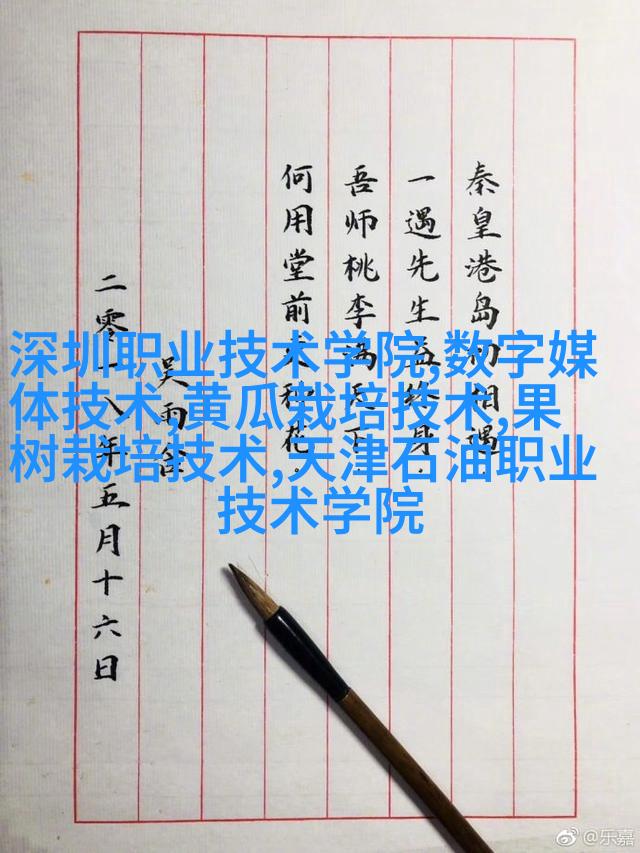 秦皇港岛初相遇
一遇先生益终身.
吾师桃李满天下
何用堂前种花.
吴雨
二零一八年五月十六日
深圳职业技术学院,数字媒
体技术,黄瓜栽培技术,果
树栽培技术,天津石油职业
技术学院
@乐嘉